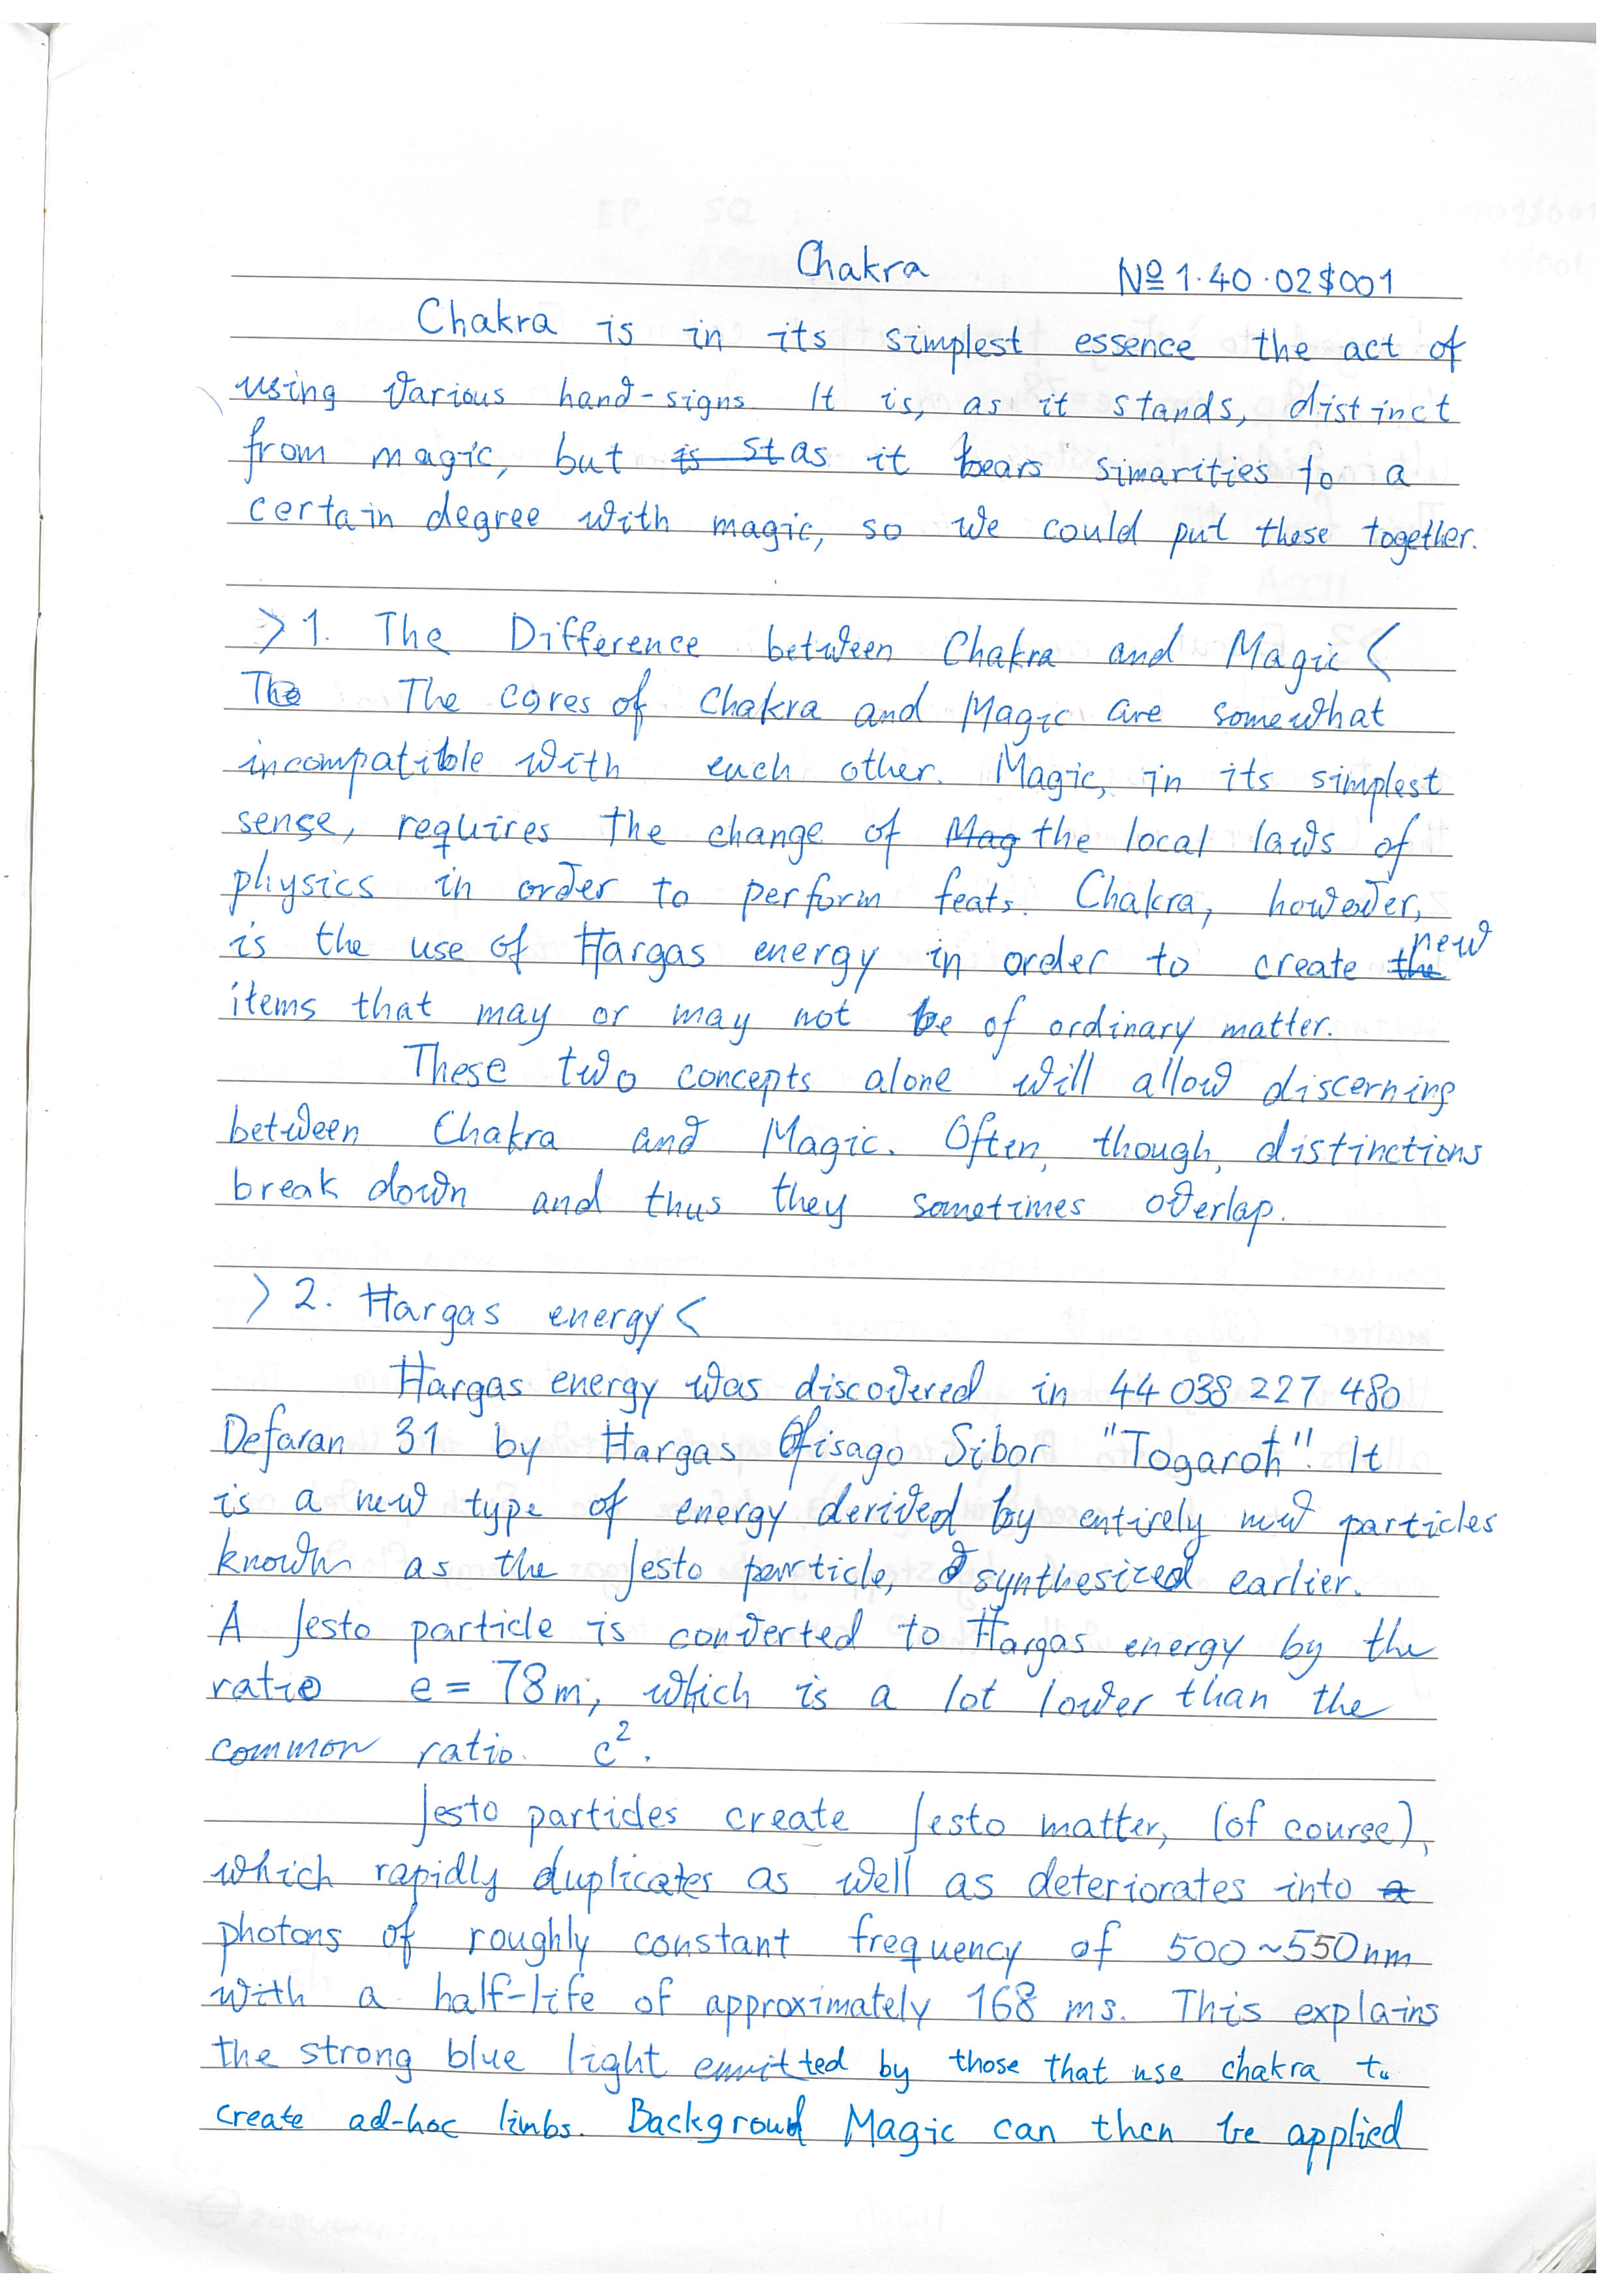 Chakra № 1.40.02$001
Chakra is in its simplest essence the act of
using various hand-signs. It is, as it stands, distinct
from magic, but is st as it bears simarities to a
certain degree with magic, so we could put these together.
>1. The Difference between Chakra and Magic<
The The cores of Chakra and Magic are somewhat
incompatible with each other. Magic, in its simplest
sense, requires the change of Mag the local laws of
physics in order to perform feats. Chakra, however,
is the use of Ħargas energy in order to create the new
items that may or may not be of ordinary matter.
These two concepts alone will allow discerning
between Chakra and Magic. Often, though, distinctions
break down and thus they sometimes overlap.
>2. Ħargas energy<
Ħargas energy was discovered in 44 038 227 480
Defaran 31 by Ħargas Sibor "Togaroħ"! It
is a new type of energy derived by entirely new particles
known as the Jesto particle, synthesized earlier.
A Jesto particle is converted to Ħargas energy by the
ratio e = 78m, which is a lot lower than the
common ratio. c².
Jesto particles create Jesto matter, (of course),
which rapidly duplicates as well as deteriorates into a
photons of roughly constant frequency of 500~550nm
with a half-life of approximately 168 ms. This explains
the strong blue light emitted by those that use chakra to
create ad-hoc limbs. Backgroud Magic can then be applied